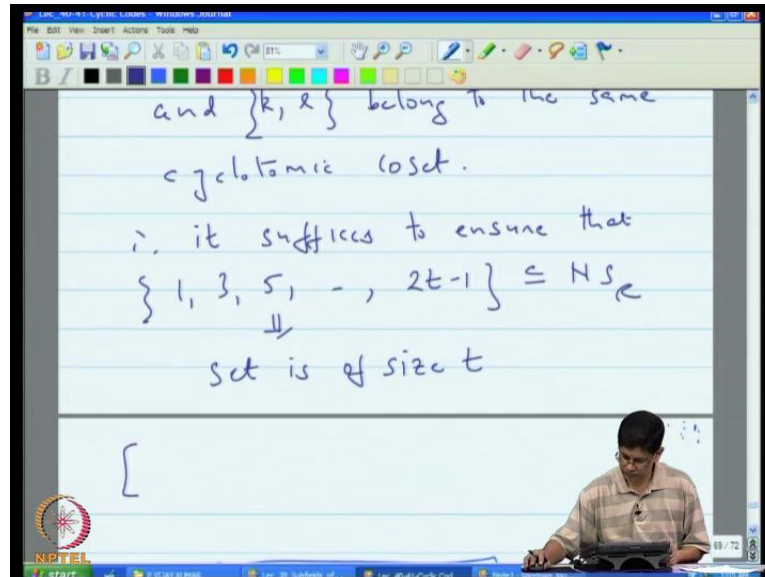 Lec_40-41-Cyclic Codes - Windows Journal
File Edit View Insert Actions Tools Help
81%
B I
and {k, l} belong to the same
cyclotomic coset.
∴ it suffices to ensure that
{ 1, 3, 5, -, 2t-1 } ⊆ NS_e
set is of size t
[
NPTEL
68 / 72
start